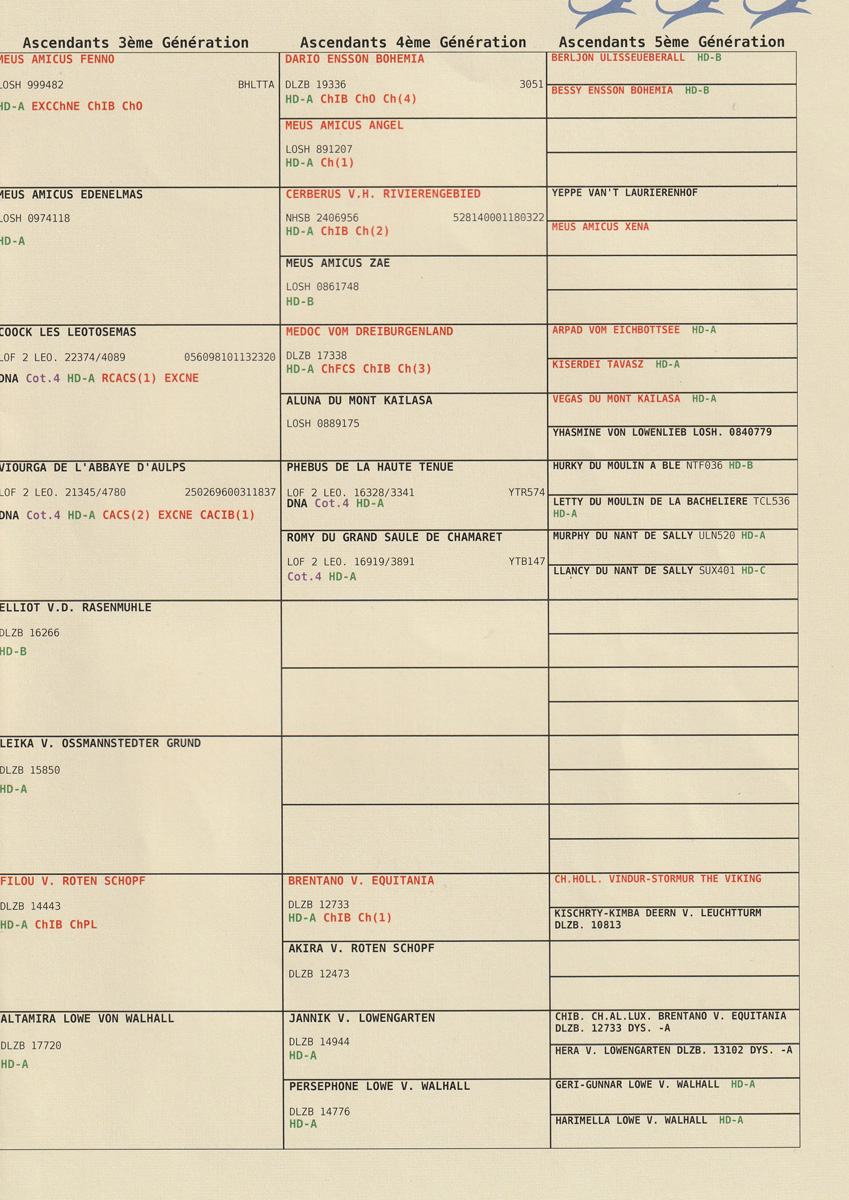 Ascendants 3ème Génération
Ascendants 4ème Génération
Ascendants 5ème Génération
MEUS AMICUS FENNO
LOSH 999482 BHLTTA
HD-A EXCChNE ChIB ChO
MEUS AMICUS EDENELMAS
LOSH 0974118
HD-A
COOCK LES LEOTOSEMAS
LOF 2 LEO. 22374/4089 056098101132320
DNA Cot.4 HD-A RCACS(1) EXCNE
VIOURGA DE L'ABBAYE D'AULPS
LOF 2 LEO. 21345/4780 250269600311837
DNA Cot.4 HD-A CACS(2) EXCNE CACIB(1)
ELLIOT V.D. RASENMUHLE
DLZB 16266
HD-B
LEIKA V. OSSMANNSTEDTER GRUND
DLZB 15850
HD-A
FILOU V. ROTEN SCHOPF
DLZB 14443
HD-A ChIB ChPL
ALTAMIRA LOWE VON WALHALL
DLZB 17720
HD-A
DARIO ENSSON BOHEMIA
DLZB 19336 3051
HD-A ChIB ChO Ch(4)
MEUS AMICUS ANGEL
LOSH 891207
HD-A Ch(1)
CERBERUS V.H. RIVIERENGEBIED
NHSB 2406956 528140001180322
HD-A ChIB Ch(2)
MEUS AMICUS ZAE
LOSH 0861748
HD-B
MEDOC VOM DREIBURGENLAND
DLZB 17338
HD-A ChFCS ChIB Ch(3)
ALUNA DU MONT KAILASA
LOSH 0889175
PHEBUS DE LA HAUTE TENUE
LOF 2 LEO. 16328/3341 YTR574
DNA Cot.4 HD-A
ROMY DU GRAND SAULE DE CHAMARET
LOF 2 LEO. 16919/3891 YTB147
Cot.4 HD-A
BRENTANO V. EQUITANIA
DLZB 12733
HD-A ChIB Ch(1)
AKIRA V. ROTEN SCHOPF
DLZB 12473
JANNIK V. LOWENGARTEN
DLZB 14944
HD-A
PERSEPHONE LOWE V. WALHALL
DLZB 14776
HD-A
BERLJON ULISSEUEBERALL HD-B
BESSY ENSSON BOHEMIA HD-B
YEPPE VAN'T LAURIERENHOF
MEUS AMICUS XENA
ARPAD VOM EICHBOTTSEE HD-A
KISERDEI TAVASZ HD-A
VEGAS DU MONT KAILASA HD-A
YHASMINE VON LOWENLIEB LOSH. 0840779
HURKY DU MOULIN A BLE NTF036 HD-B
LETTY DU MOULIN DE LA BACHELIERE TCL536
HD-A
MURPHY DU NANT DE SALLY ULN520 HD-A
LLANCY DU NANT DE SALLY SUX401 HD-C
CH.HOLL. VINDUR-STORMUR THE VIKING
KISCHRTY-KIMBA DEERN V. LEUCHTTURM
DLZB. 10813
CHIB. CH.AL.LUX. BRENTANO V. EQUITANIA
DLZB. 12733 DYS. -A
HERA V. LOWENGARTEN DLZB. 13102 DYS. -A
GERI-GUNNAR LOWE V. WALHALL HD-A
HARIMELLA LOWE V. WALHALL HD-A